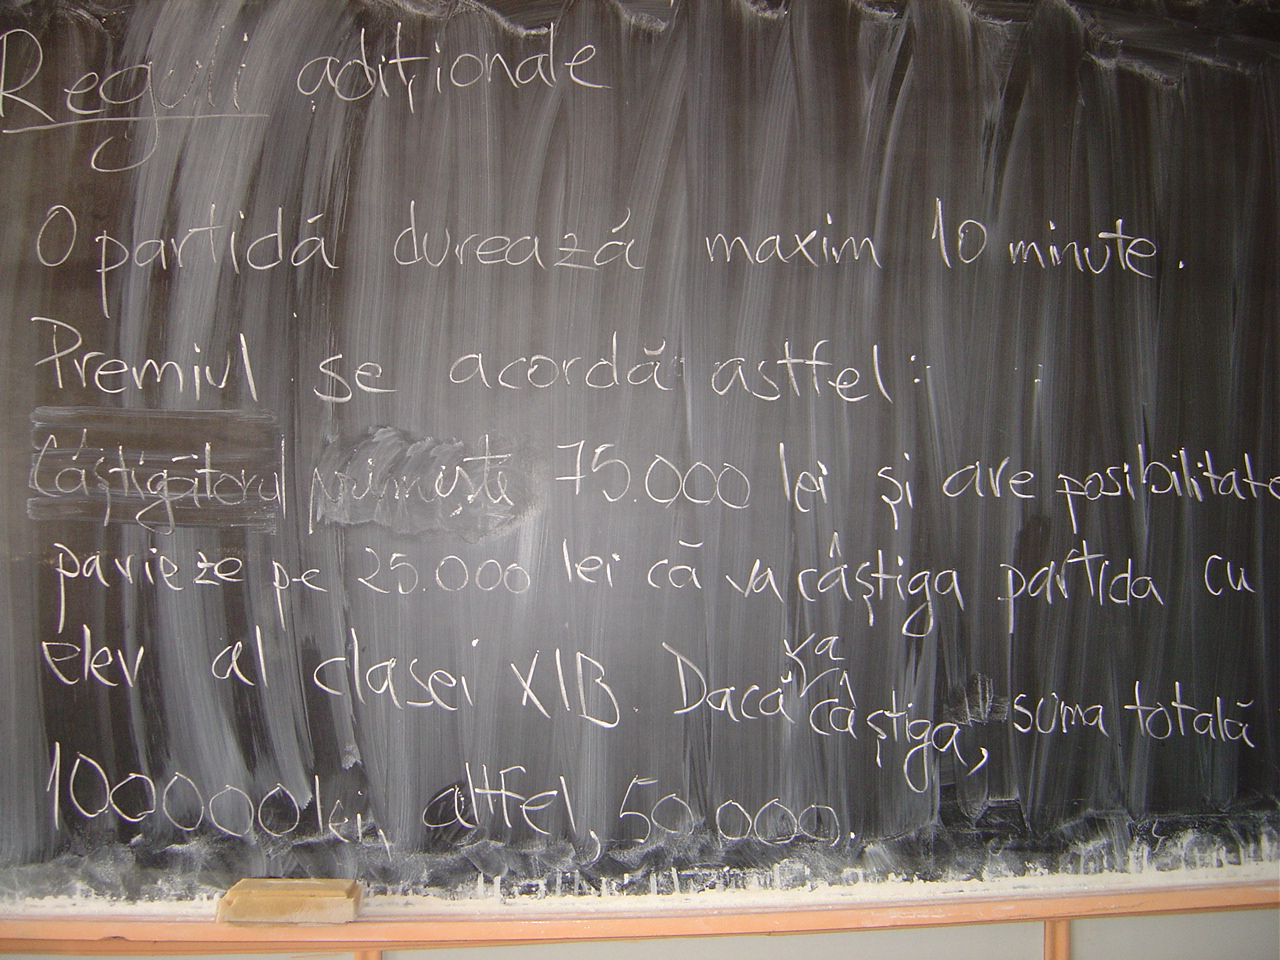 Reguli adiționale
O partidă durează maxim 10 minute.
Premiul se acordă astfel:
Câștigătorul primește 75.000 lei și are posibilitate
parieze pe 25.000 lei că va câștiga partida cu
elev al clasei XIB. Dacă va câștiga, suma totală
100000 lei, altfel, 50.000.